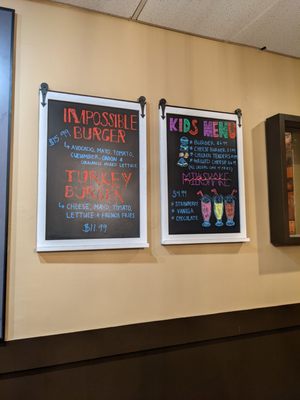 IMPOSSIBLE
$15.99 BURGER
AVOCADO, MAYO, TOMATO,
CUCUMBER, ONION &
ORGANIC MIXED LETTUCE
TURKEY
BURGER
CHEESE, MAYO, TOMATO,
LETTUCE & FRENCH FRIES
$11.99
KIDS MENU $9.99
BURGER
CHEESE BURGER
CHICKEN TENDERS
GRILLED CHEESE
MILKSHAKE
$4.99
STRAWBERRY
VANILLA
CHOCOLATE